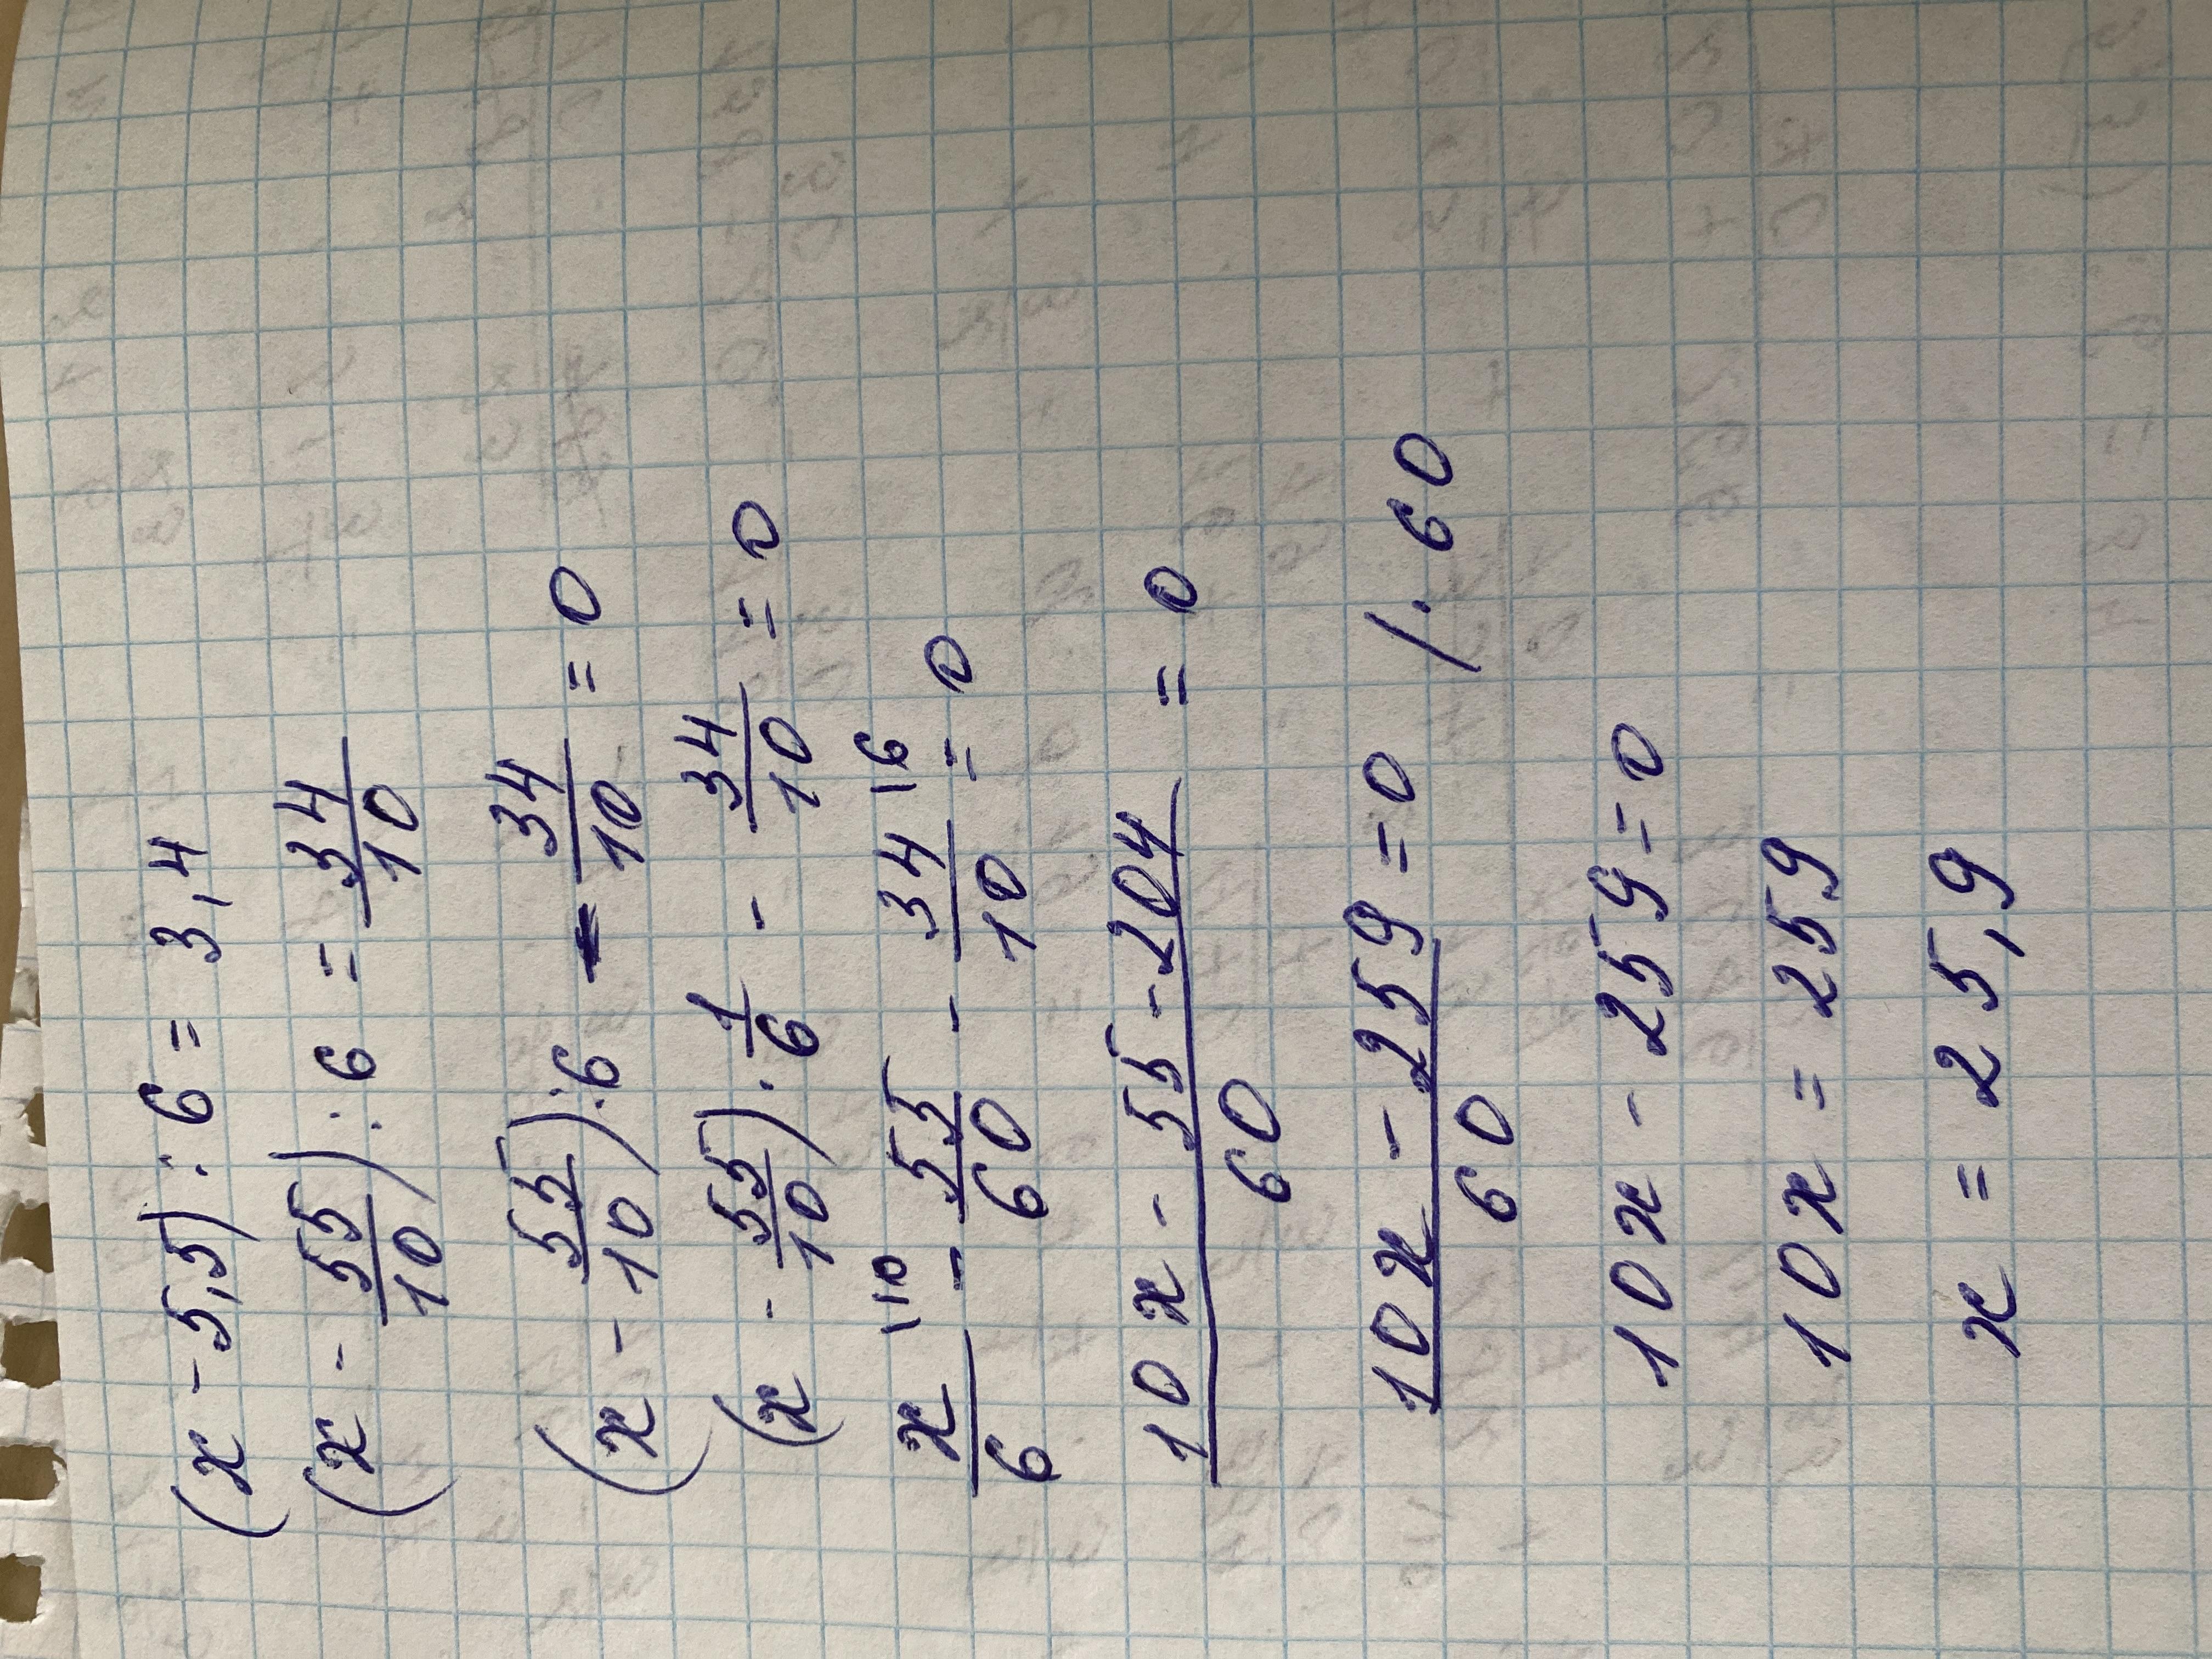 (x - 5,5) : 6 = 3,4
(x - 55/10) : 6 = 34/10
(x - 55/10) : 6 - 34/10 = 0
(x - 55/10) · 1/6 - 34/10 = 0
x/6 \10 - 55/60 - 34/10 \6 = 0
10x - 55 - 204/60 = 0
10x - 259/60 = 0 / · 60
10x - 259 = 0
10x = 259
x = 25,9